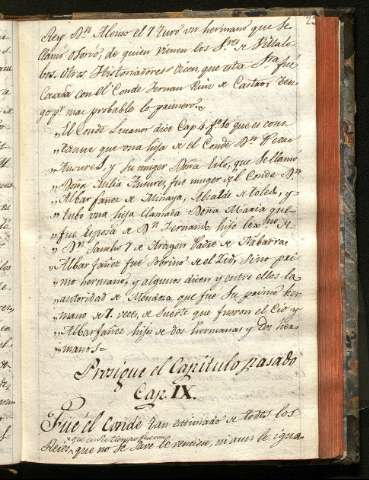 Rey Dn. Alonso el 7 tuvo un hermano que se
llamó Osorio, de quien vienen los Sres. de Villalo-
bos. Otros Historiadores dicen, que esta Sra. fue
Casada con el Conde Fernan Ruiz de Castro; ten-
go pr. mas probable lo primero.
" El Conde Lucanor dice Cap. 4 fo. 10 que es cons-
" tante que una hija de el Conde Dn. Pedro
" Ansures, y su muger Doña Eilo, que se llamó
" Doña Ansures, fue muger del Conde Dn.
" Albar fañez de Minaya, Alcalde de Toledo, y
" tubo una hija llamada Doña Maria que
" fue Esposa de Dn. Fernando hijo
" Dn. Sancho de Aragon Padre de Nabarra.
" Albar fañez fue sobrino de el Zid, sino pri-
" mo hermano, y algunos dicen y entre ellos la
" autoridad de Mendoza que fue su primo her-
" mano 2 veces, de suerte que fueron el Cid y
" Albar fañez hijos de dos hermanas y dos her-
" manos.
Prosigue el Capitulo pasado
Cap. IX.
Fue el Conde tan estimado de todos los
Reies, que no se save le venciese, ni aun le igua-